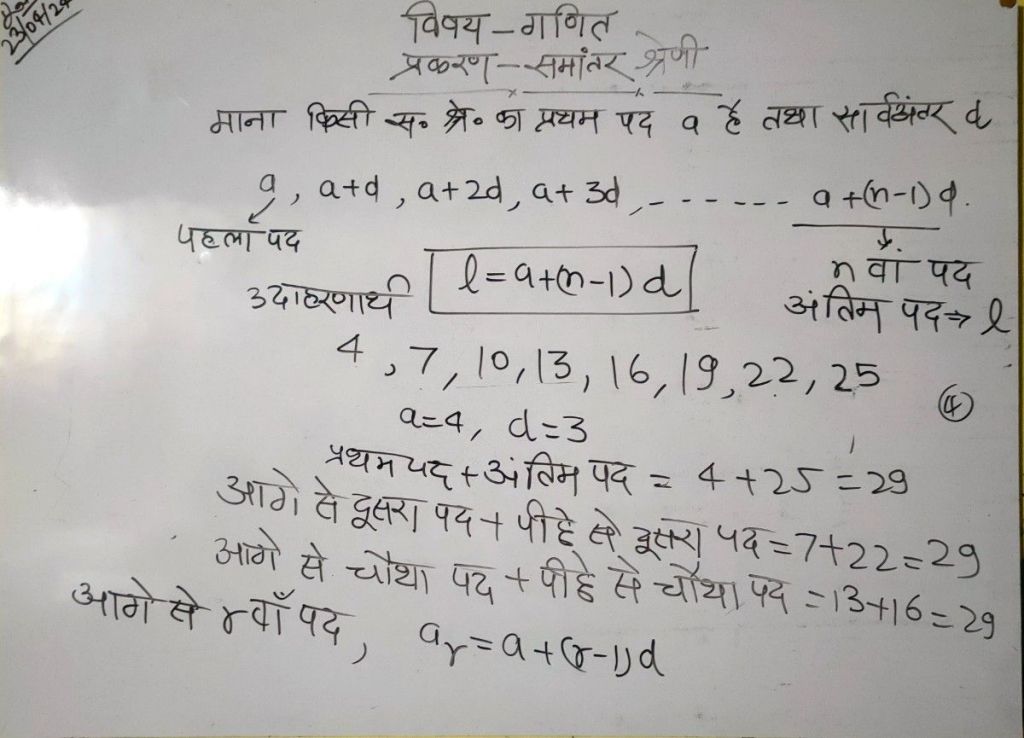 23/04/24
विषय – गणित
प्रकरण – समांतर श्रेणी
माना किसी स॰ श्रे॰ का प्रथम पद a है तथा सार्वअंतर d
a, a+d, a+2d, a+3d, ------- a+(n-1)d.
पहला पद
n वाँ पद
उदाहरणार्थ l=a+(n-1)d
अंतिम पद ⇒ l
4, 7, 10, 13, 16, 19, 22, 25
④
a=4, d=3
प्रथम पद + अंतिम पद = 4+25 = 29
आगे से दूसरा पद + पीछे से दूसरा पद = 7+22 = 29
आगे से चौथा पद + पीछे से चौथा पद = 13+16 = 29
आगे से r वाँ पद, aᵣ = a+(r-1)d